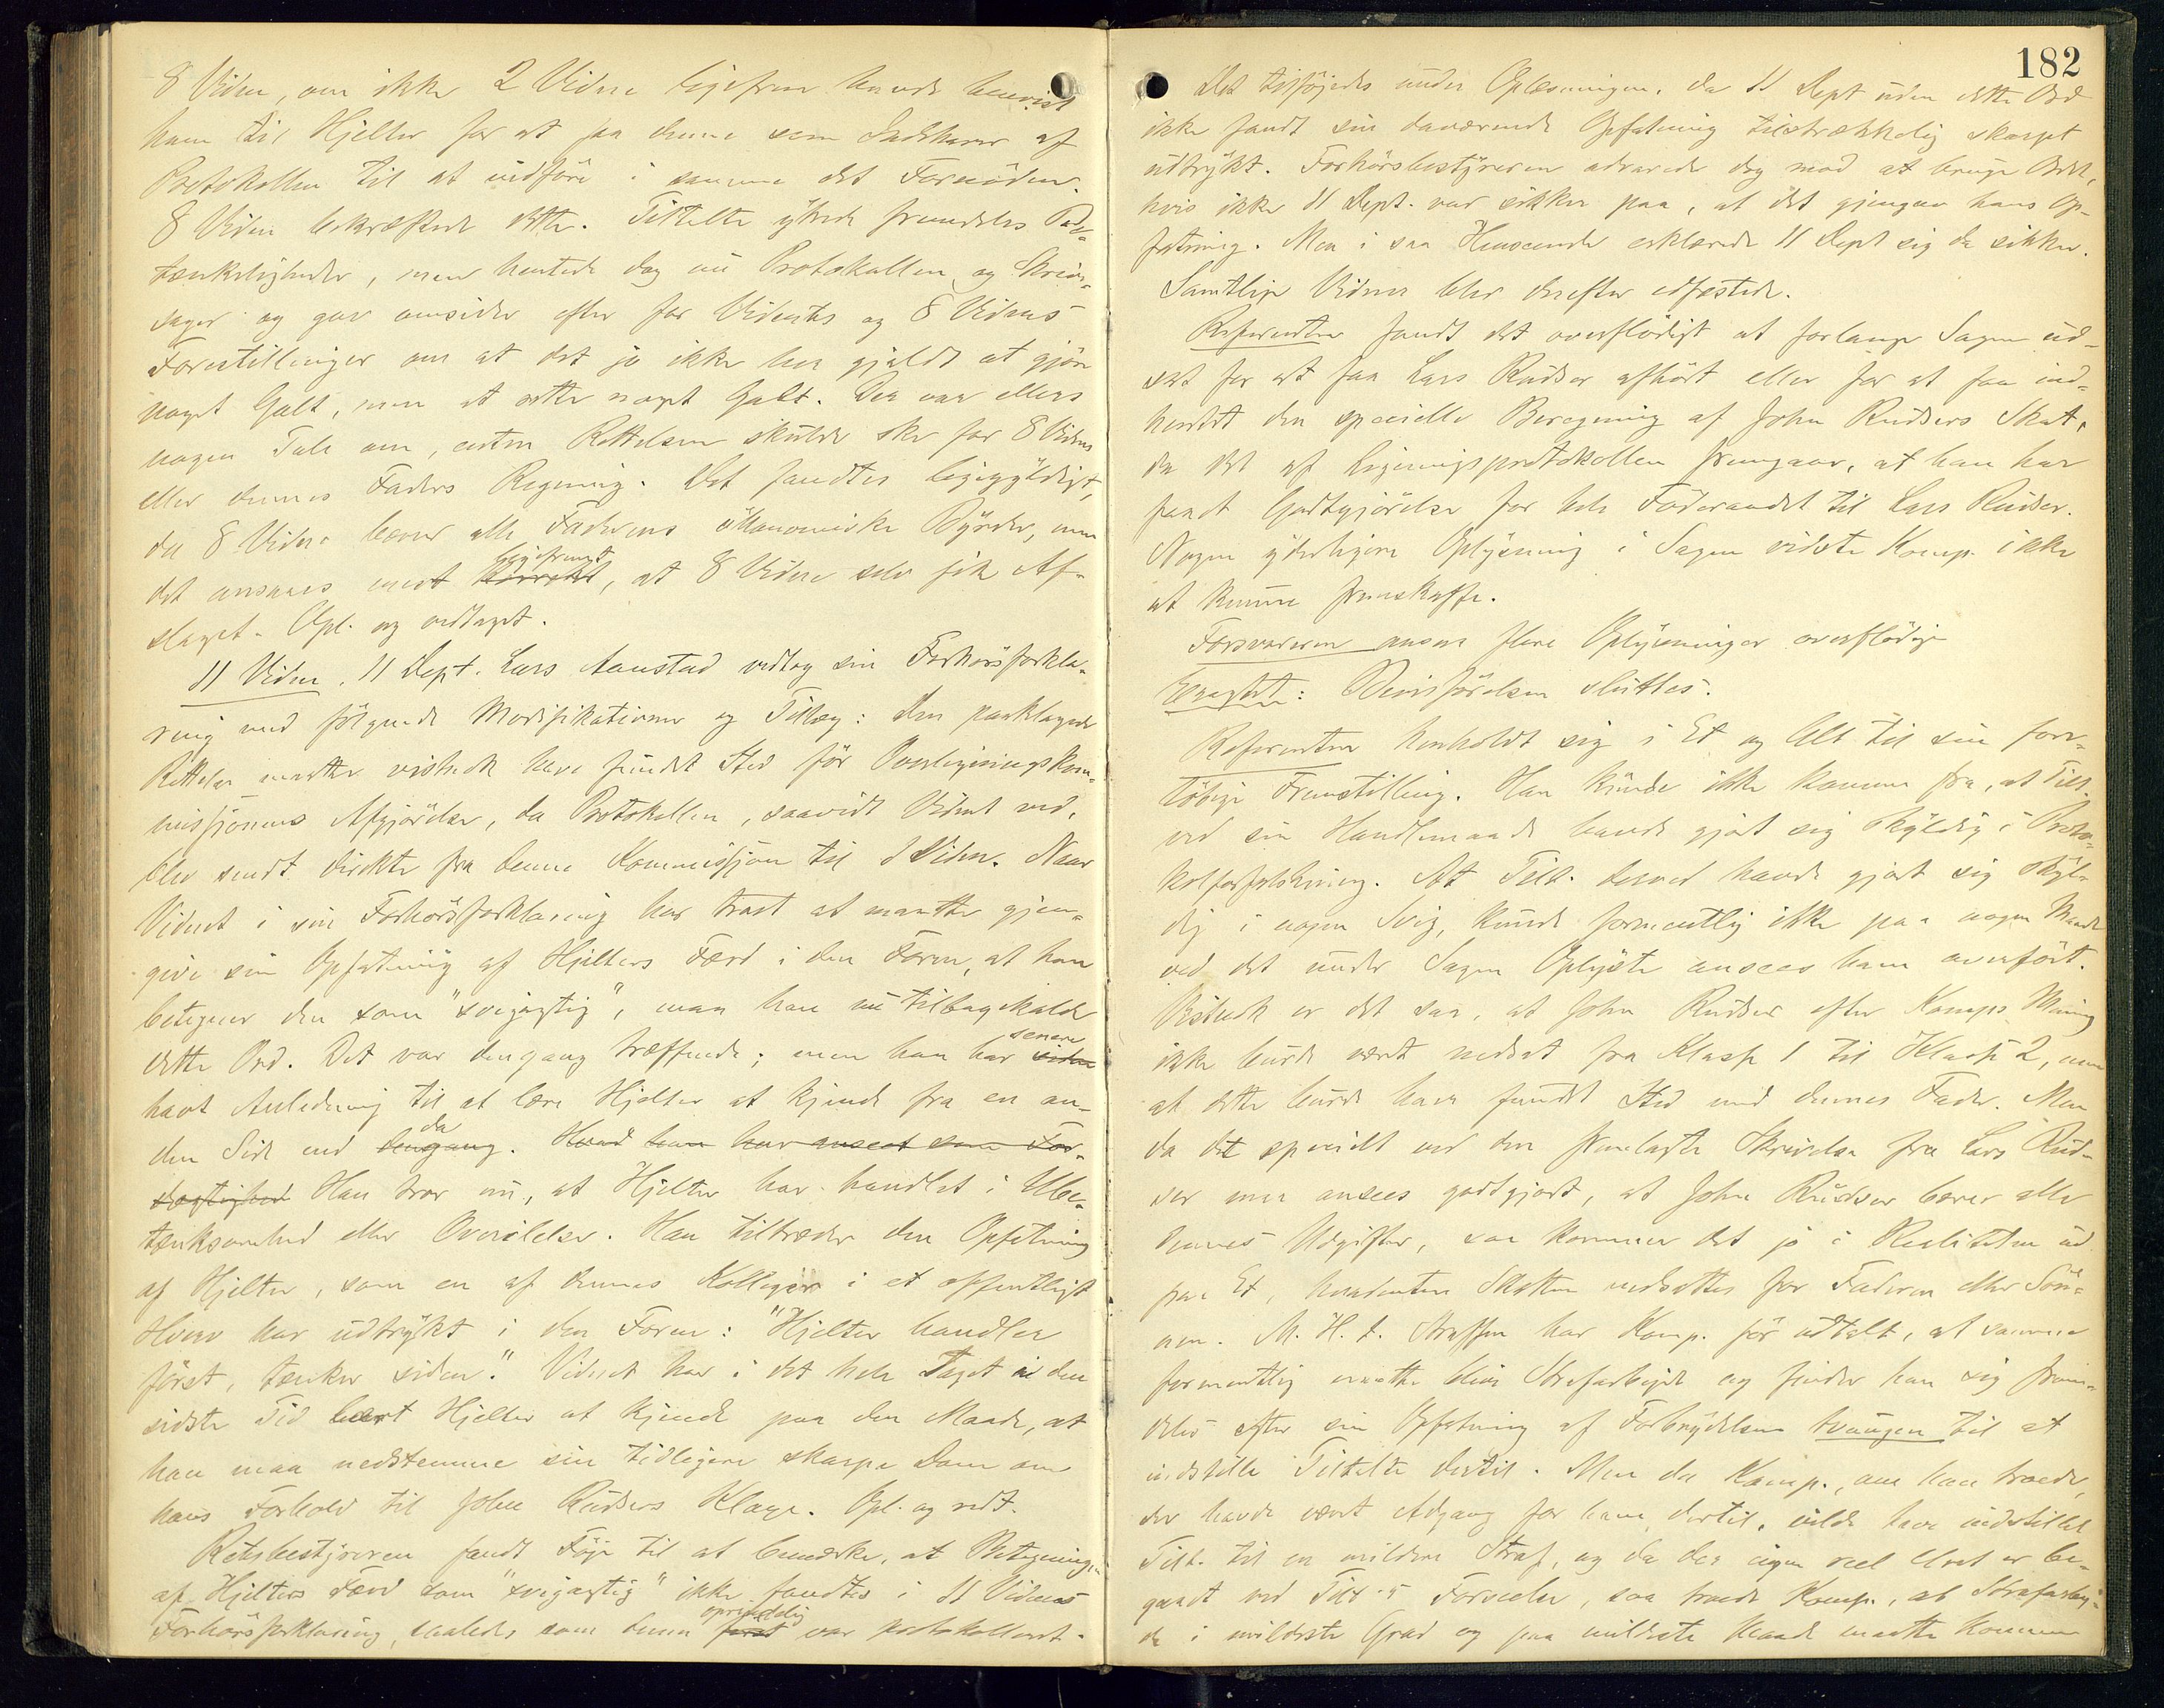 8 Vidne, om ikke 2 Vidne ligefrem havde henvist
ham til Hjelter for at faa denne som Indehaver af
Protokollen til at indføre i samme det Fornødne.
8 Vidne bekræftede dette. Tiltalte ytrede fremdeles Be-
tænkeligheder, men hentede dog nu Protokollen og Skriv-
sager og gav omsider efter for Vidnets og 8 Vidnes
Forestillinger om at det jo ikke her gjaldt at gjøre
noget Galt, men at rette noget Galt. Der var ellers
nogen Tale om, enten Rettelsen skulde ske for 8 Vidnes
eller dennes Faders Regning. Det fandtes ligegyldigt,
da 8 Vidne bærer alle Faderens økonomiske Byrder, men
det ansaaes mest korrekt ligefremt, at 8 Vidne selv fik Af-
slaget. Opl. og vedtaget.
11 Vidne, 11 Dept. Lars Aanstad vedtog sin Forhørsforkla-
ring med følgende Modifikationer og Tillæg: Den paaklagede
Rettelse maatte vistnok have fundet Sted før Overligningskom-
missjonens Afgjørelse, da Protokollen, saavidt Vidnet ved,
blev sendt direkte fra denne Kommissjon til 1 Vidne. Naar
Vidnet i sin Forhørsforklaring har troet at maatte gjen-
give sin Opfatning af Hjelters Færd i den Form, at han
betegner den som "svigagtig", maa han nu tilbagekalde
dette Ord. Det var dengang træffende; men han har siden senere
havt Anledning til at lære Hjelter at kjende fra en an-
den Side end dengang da. Hvad han har anseet som For-
sætlighed Han tror nu, at Hjelter har handlet i Ube-
tænksomhed eller Overilelse. Han tiltræder den Opfatning
af Hjelter, som en af dennes Kolleger i et offentligt
Hverv har udtrykt i den Form: "Hjelter handler
først, tænker siden". Vidnet har i det hele Taget i den
sidste Tid lært Hjelter at kjende paa den Maade, at
han maa nedstemme sin tidligere skarpe Dom om
hans Forhold til John Rudsers Klage. Opl. og vedt.
Retsbestyreren fandt Føje til at bemærke, at Betegningen
af Hjelters Færd som "svigagtig" ikke fandtes i 11 Vidnes
Forhørsforklaring, saaledes som denne først oprindelig var protokolleret.
182
Det tilføjedes under Oplæsningen, da 11 Dept uden dette Ord
ikke fandt sin daværende Opfatning tilstrækkelig skarpt
udtrykt. Forhørsbestyreren advarede dog mod at bruge Ordet,
hvis ikke 11 Dept. var sikker paa, at det gjengav hans Op-
fatning. Men i saa Henseende erklærede 11 Dept sig da sikker.
Samtlige Vidner blev derefter edfæstede.
Referenten fandt det overflødigt at forlange Sagen ud-
sat for at faa Lars Rudser afhørt eller for at faa ind-
hentet den specielle Beregning af John Rudsers Skat,
da det af Ligningsprotokollen fremgaar, at han har
faaet Godtgjørelse for hele Føderaadet til Lars Rudser.
Nogen yderligere Oplysning i Sagen vidste Komp. ikke
at kunne fremskaffe.
Forsvareren ansaa flere Oplysninger overflødige
Eragtet: Bevisførelsen sluttes.
Referenten henholdt sig i Et og Alt til sin fore-
løbige Fremstilling. Han kunde ikke komme fra, at Tilt.
ved sin Handlemaade havde gjort sig skyldig i Proto-
kolforfalskning. At Tilt. derved havde gjort sig skyl-
dig i nogen Svig, kunde formentlig ikke paa nogen Maade
ved det under Sagen Oplyste ansees ham overført.
Vistnok er det saa, at John Rudser efter Komps Mening
ikke burde været nedsat fra Klasse 1 til Klasse 2, men
at dette burde have fundet Sted med dennes Fader. Men
da det specielt ved den fremlagte Skrivelse fra Lars Rud-
ser maa ansees godtgjort, at John Rudser bærer alle
dennes Udgifter, saa kommer det jo i Realiteten ud
paa Et, hvadenten Skatten nedsættes for Faderen eller Søn-
nen. M. H. t. Straffen har Komp. før udtalt, at samme
formentlig maatte blive Strafarbejde og finder han sig frem-
deles efter sin Opfatning af Forbrydelsen tvungen til at
indstille Tiltalte dertil. Men da Komp., om han troede,
der havde været Adgang for ham dertil, vilde have indstillet
Tilt. til en mildere Straf, og da der ingen reel Uret er be-
gaaet ved Tilt's Forseelse, saa troede Komp., at Strafarbej-
de i mildeste Grad og paa mildeste Maade maatte komme